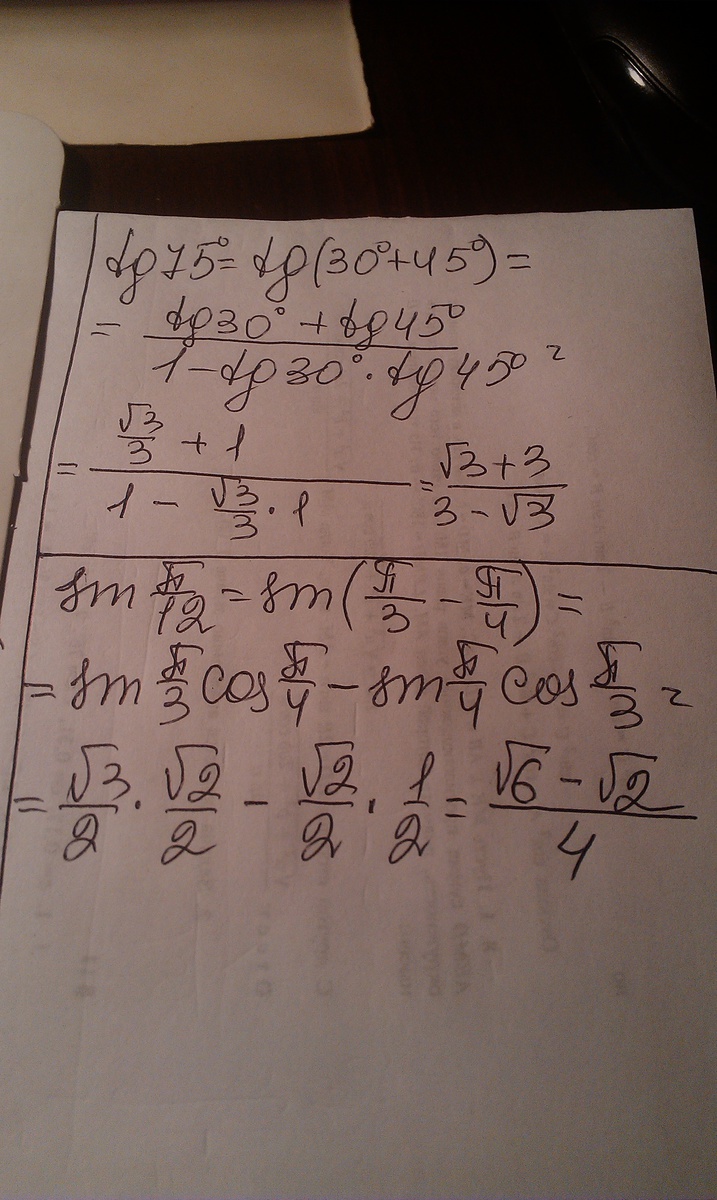 tg75° = tg(30°+45°) =
= (tg30° + tg45°)/(1 - tg30° · tg45°) =
= (√3/3 + 1)/(1 - √3/3 · 1) = (√3+3)/(3-√3)
sin π/12 = sin(π/3 - π/4) =
= sin π/3 cos π/4 - sin π/4 cos π/3 =
= √3/2 · √2/2 - √2/2 · 1/2 = (√6-√2)/4